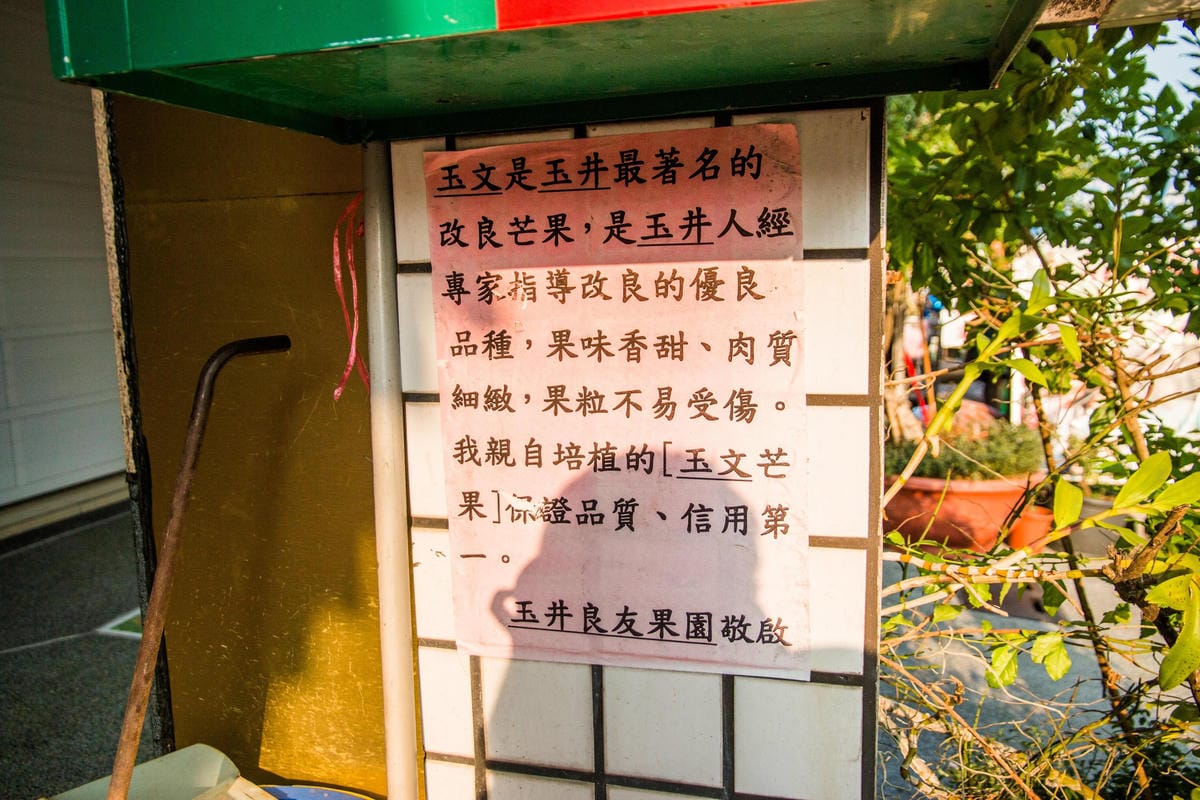 玉文是玉井最著名的
改良芒果,是玉井人經
專家指導改良的優良
品種,果味香甜、肉質
細緻,果粒不易受傷。
我親自培植的[玉文芒
果]保證品質、信用第
一。
玉井良友果園敬啟